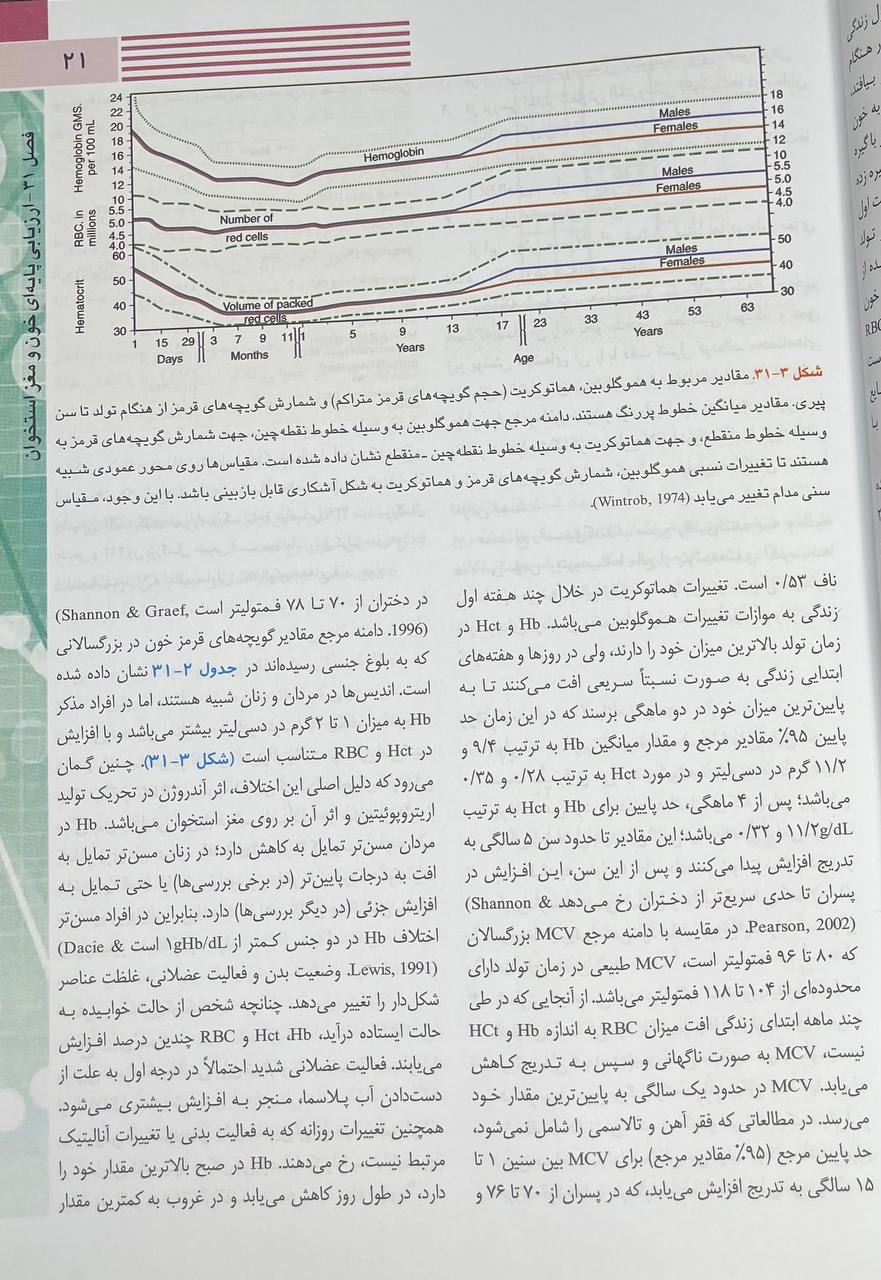 ۲۱
فصل ۳۱ - ارزیابی پایه‌ای خون و مغز استخوان
Hemoglobin GMS.
per 100 mL
24
22
20
18
16
14
12
10
RBC. in
millions
5.5
5.0
4.5
4.0
Hematocrit
60
50
40
30
Hemoglobin
Males
Females
Number of
red cells
Males
Females
Volume of packed
red cells
Males
Females
18
16
14
12
10
5.5
5.0
4.5
4.0
50
40
30
1 15 29 3 7 9 11 1 5 9 13 17 23 33 43 53 63
Days Months Years Age Years
شکل ۳-۳۱. مقادیر مربوط به هموگلوبین، هماتوکریت (حجم گویچه‌های قرمز متراکم) و شمارش گویچه‌های قرمز از هنگام تولد تا سن
پیری. مقادیر میانگین خطوط پررنگ هستند. دامنه مرجع جهت هموگلوبین به وسیله خطوط نقطه‌چین، جهت شمارش گویچه‌های قرمز به
وسیله خطوط منقطع، و جهت هماتوکریت به وسیله خطوط نقطه‌چین -منقطع نشان داده شده است. مقیاس‌ها روی محور عمودی شبیه
هستند تا تغییرات نسبی هموگلوبین، شمارش گویچه‌های قرمز و هماتوکریت به شکل آشکاری قابل بازبینی باشد. با این وجود، مقیاس
سنی مدام تغییر می‌یابد (Wintrob, 1974).
ناف ۰/۵۳ است. تغییرات هماتوکریت در خلال چند هفته اول
زندگی به موازات تغییرات هموگلوبین می‌باشد. Hb و Hct در
زمان تولد بالاترین میزان خود را دارند، ولی در روزها و هفته‌های
ابتدایی زندگی به صورت نسبتاً سریعی افت می‌کنند تا به
پایین‌ترین میزان خود در دو ماهگی برسند که در این زمان حد
پایین ۹۵٪ مقادیر مرجع و مقدار میانگین Hb به ترتیب ۹/۴ و
۱۱/۲ گرم در دسی‌لیتر و در مورد Hct به ترتیب ۰/۲۸ و ۰/۳۵
می‌باشد؛ پس از ۴ ماهگی، حد پایین برای Hb و Hct به ترتیب
۱۱/۲g/dL و ۰/۳۲ می‌باشد؛ این مقادیر تا حدود سن ۵ سالگی به
تدریج افزایش پیدا می‌کنند و پس از این سن، این افزایش در
پسران تا حدی سریع‌تر از دختران رخ می‌دهد (Shannon &
Pearson, 2002). در مقایسه با دامنه مرجع MCV بزرگسالان
که ۸۰ تا ۹۶ فمتولیتر است، MCV طبیعی در زمان تولد دارای
محدوده‌ای از ۱۰۴ تا ۱۱۸ فمتولیتر می‌باشد. از آنجایی که در طی
چند ماهه ابتدای زندگی افت میزان RBC به اندازه Hb و HCt
نیست، MCV به صورت ناگهانی و سپس به تدریج کاهش
می‌یابد. MCV در حدود یک سالگی به پایین‌ترین مقدار خود
می‌رسد. در مطالعاتی که فقر آهن و تالاسمی را شامل نمی‌شود،
حد پایین مرجع (۹۵٪ مقادیر مرجع) برای MCV بین سنین ۱ تا
۱۵ سالگی به تدریج افزایش می‌یابد، که در پسران از ۷۰ تا ۷۶ و
در دختران از ۷۰ تا ۷۸ فمتولیتر است (Shannon & Graef,
1996). دامنه مرجع مقادیر گویچه‌های قرمز خون در بزرگسالانی
که به بلوغ جنسی رسیده‌اند در جدول ۲-۳۱ نشان داده شده
است. اندیس‌ها در مردان و زنان شبیه هستند، اما در افراد مذکر
Hb به میزان ۱ تا ۲ گرم در دسی‌لیتر بیشتر می‌باشد و با افزایش
در Hct و RBC متناسب است (شکل ۳-۳۱). چنین گمان
می‌رود که دلیل اصلی این اختلاف، اثر آندروژن در تحریک تولید
اریتروپوئیتین و اثر آن بر روی مغز استخوان می‌باشد. Hb در
مردان مسن‌تر تمایل به کاهش دارد؛ در زنان مسن‌تر تمایل به
افت به درجات پایین‌تر (در برخی بررسی‌ها) یا حتی تمایل به
افزایش جزئی (در دیگر بررسی‌ها) دارد. بنابراین در افراد مسن‌تر
اختلاف Hb در دو جنس کمتر از ۱gHb/dL است (Dacie &
Lewis, 1991). وضعیت بدن و فعالیت عضلانی، غلظت عناصر
شکل‌دار را تغییر می‌دهد. چنانچه شخص از حالت خوابیده به
حالت ایستاده درآید، Hct ،Hb و RBC چندین درصد افزایش
می‌یابند. فعالیت عضلانی شدید احتمالاً در درجه اول به علت از
دست‌دادن آب پلاسما، منجر به افزایش بیشتری می‌شود.
همچنین تغییرات روزانه که به فعالیت بدنی یا تغییرات آنالیتیک
مرتبط نیست، رخ می‌دهند. Hb در صبح بالاترین مقدار خود را
دارد، در طول روز کاهش می‌یابد و در غروب به کمترین مقدار